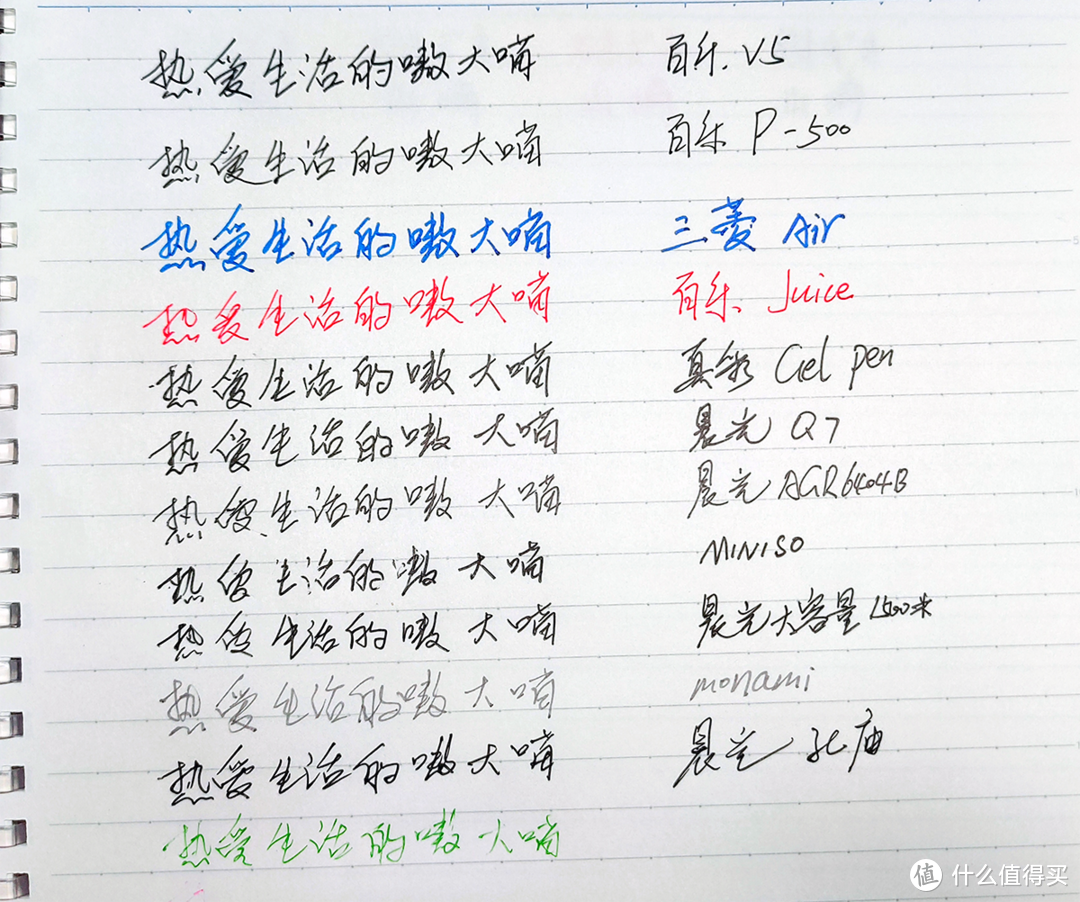 热爱生活的嗷大喵 百乐 V5
热爱生活的嗷大喵 百乐 P-500
热爱生活的嗷大喵 三菱 Air
热爱生活的嗷大喵 百乐 Juice
热爱生活的嗷大喵 真彩 Gel pen
热爱生活的嗷大喵 晨光 Q7
热爱生活的嗷大喵 晨光 AGR6404B
热爱生活的嗷大喵 MINISO
热爱生活的嗷大喵 晨光大容量1500米
热爱生活的嗷大喵 monami
热爱生活的嗷大喵 晨光 孔庙
热爱生活的嗷大喵
值 什么值得买